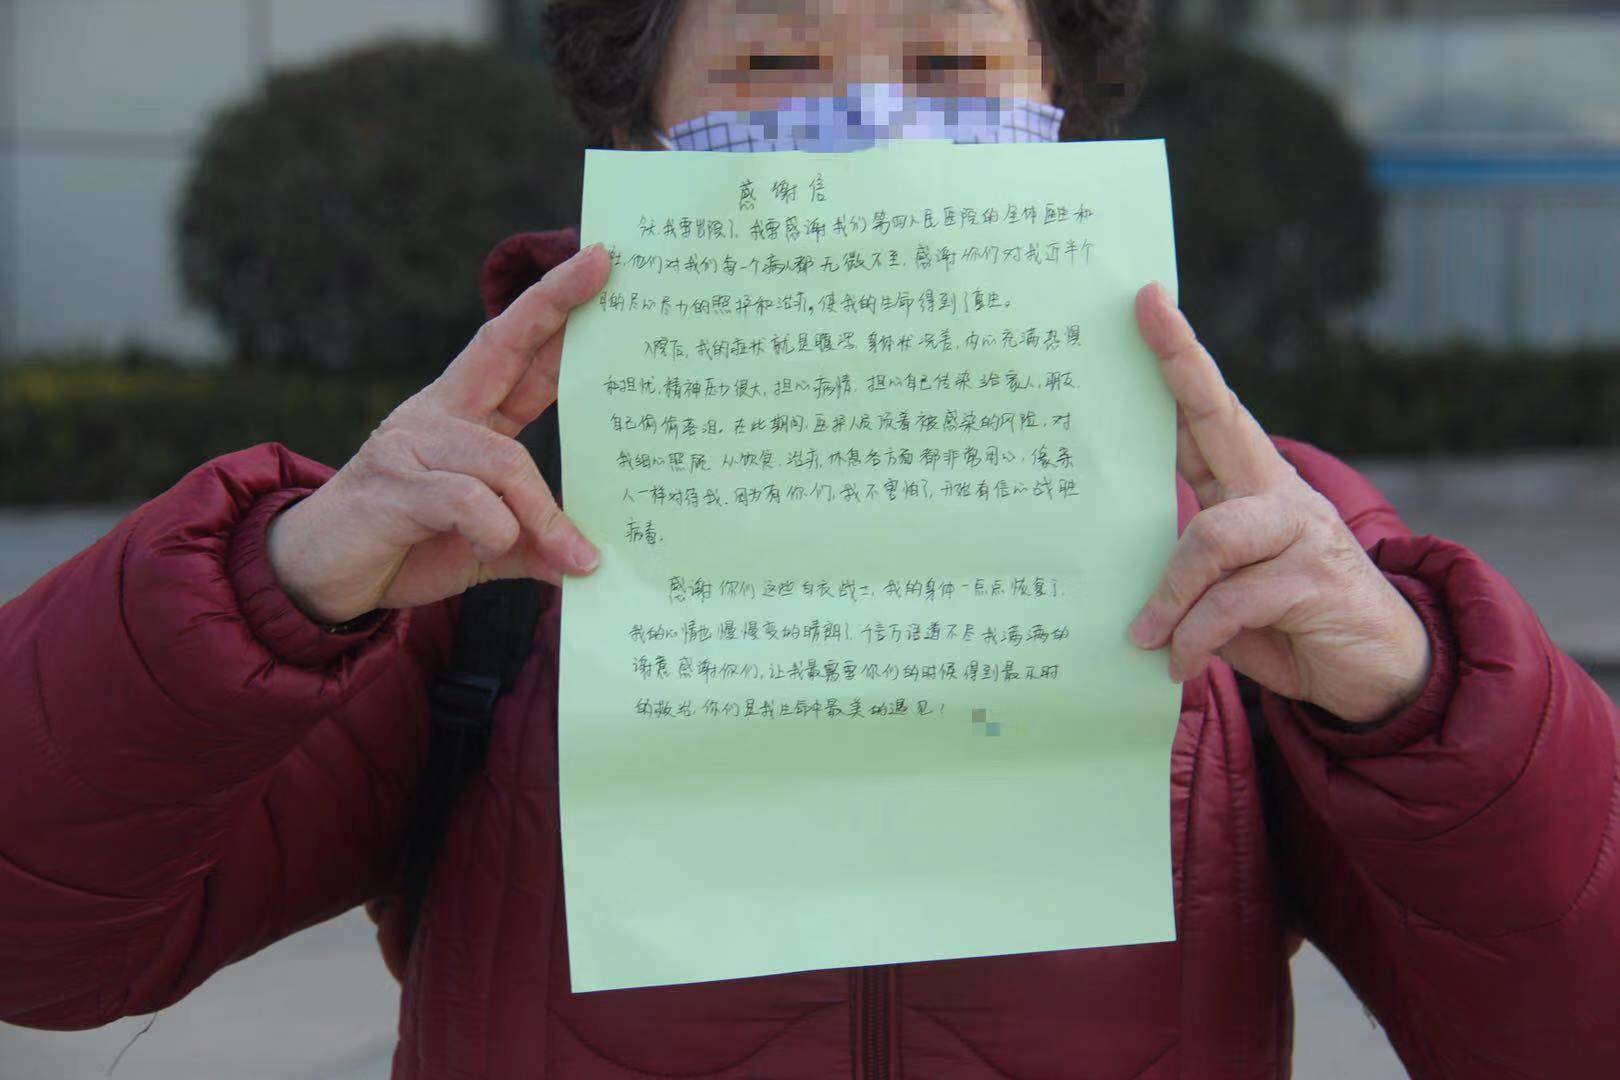 感谢信
今天我要出院了，我要感谢我们第四人民医院的全体医生和
他们对我们每一个病人都无微不至，感谢你们对我近半个
月的尽心尽力的照护和治疗。使我的生命得到了重生。
入院后，我的症状就是腹泻，身体状况差，内心充满恐惧
和担忧，精神压力很大，担心病情，担心自己传染给家人，朋友，
自己偷偷落泪。在此期间，医护人员顶着被感染的风险，对
我细心照顾，从饮食，治疗，休息各方面都非常用心，像亲
人一样对待我，因为有你们，我不害怕了，开始有信心战胜
病毒。
感谢你们这些白衣战士，我的身体一点点恢复了，
我的心情也慢慢变的晴朗了，千言万语道不尽我满满的
谢意感谢你们，让我最需要你们的时候得到最及时
的救治，你们是我生命中最美的遇见！